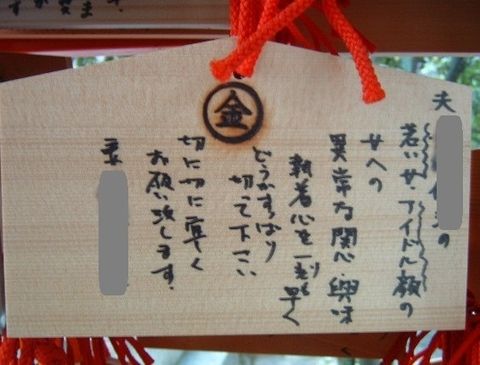 金
夫
の
若い女、アイドル顔の
女への
異常な関心・興味
執着心を一刻も早く
どうかすっぱり
切って下さい
切に切に宜く
お願い致します。
妻